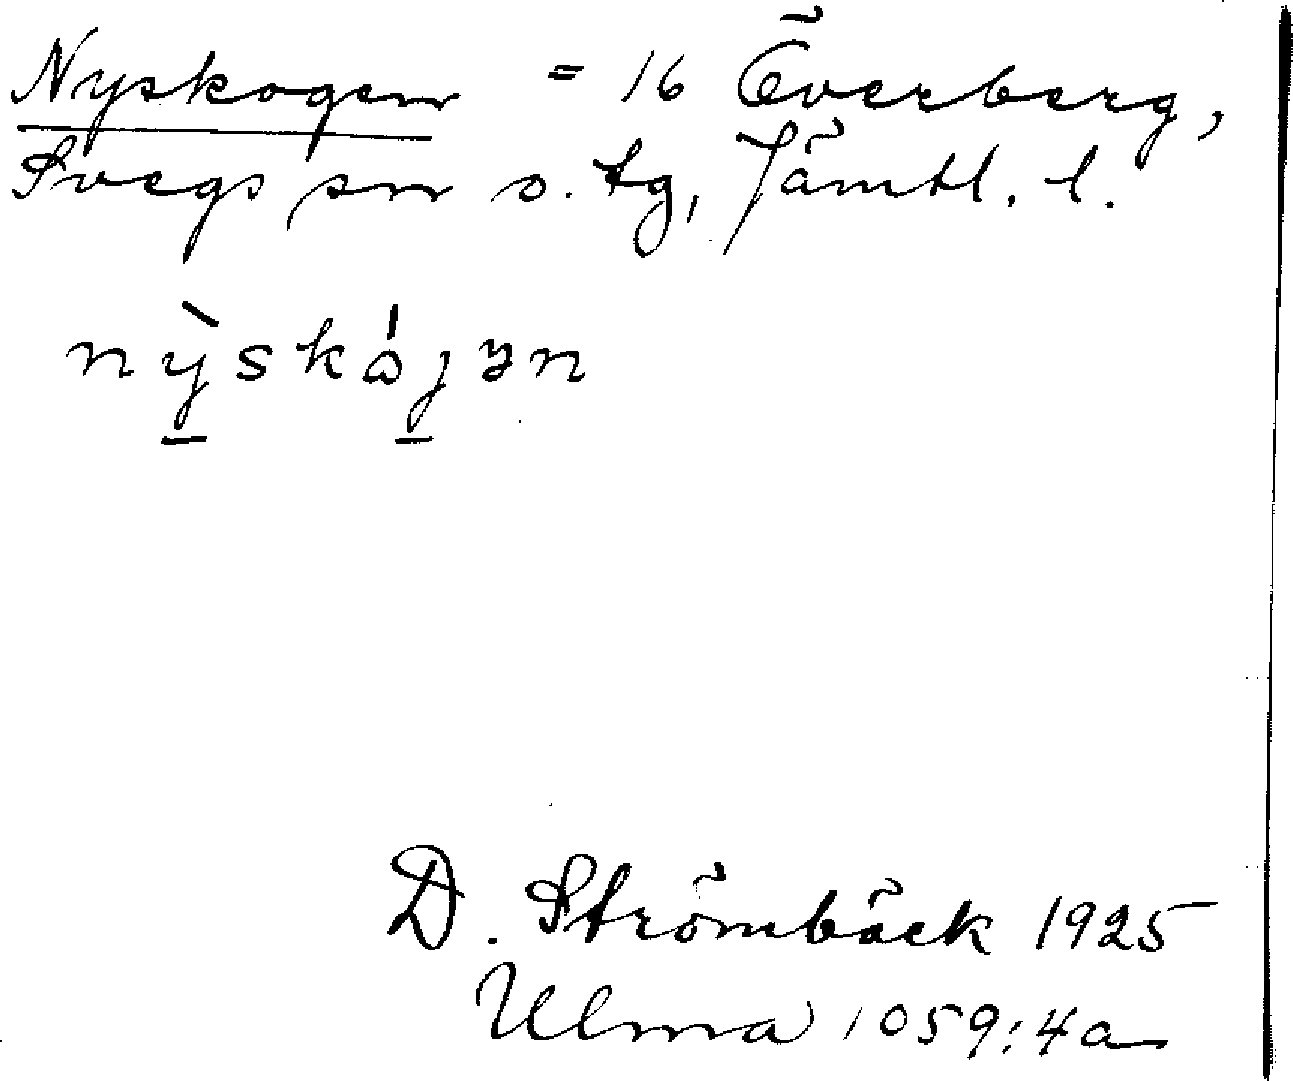 Nyskogen = 16 Överberg,
Svegs sn o. tg, Jämtl. l.
nỳskójən
D. Strömbäck 1925
Ulma 1059:4a